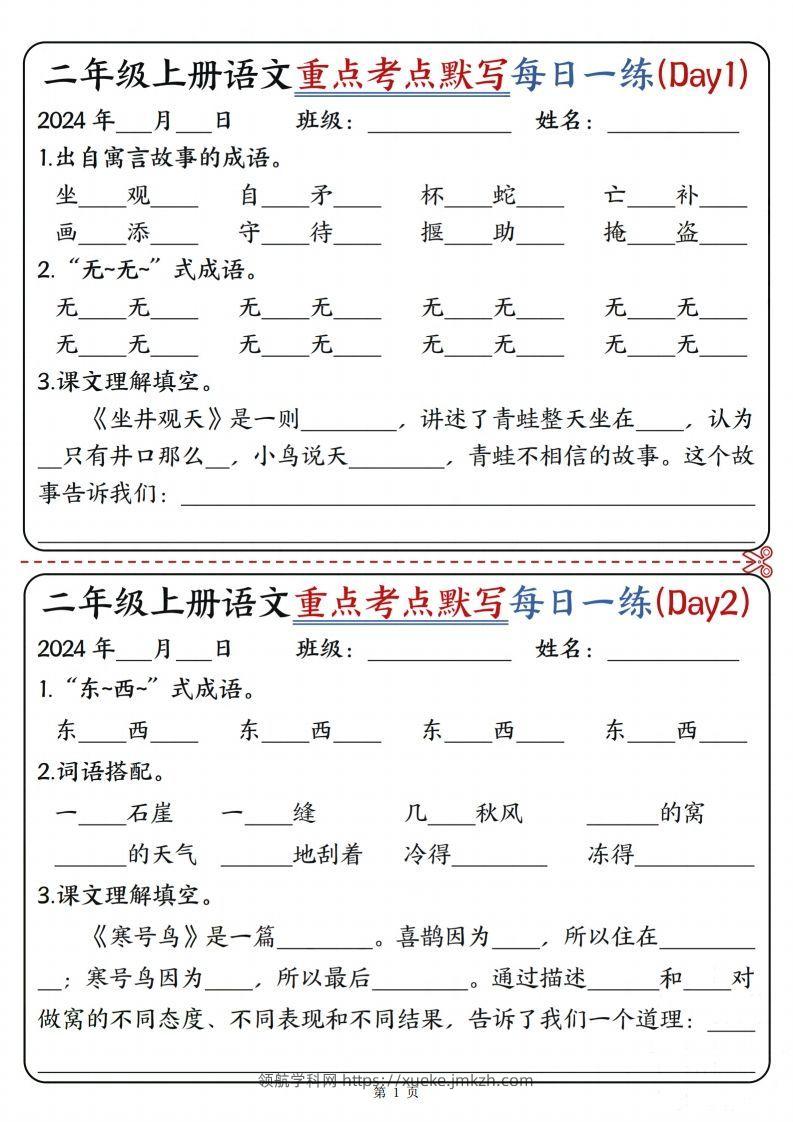 二年级上册语文重点考点默写每日一练(Day1)
2024 年___月___日 班级：____________ 姓名：___________
1.出自寓言故事的成语。
坐____观____ 自____矛____ 杯____蛇____ 亡____补____
画____添____ 守____待____ 揠____助____ 掩____盗____
2.“无~无~”式成语。
无____无____ 无____无____ 无____无____ 无____无____
无____无____ 无____无____ 无____无____ 无____无____
3.课文理解填空。
《坐井观天》是一则________，讲述了青蛙整天坐在____，认为
__只有井口那么__，小鸟说天________，青蛙不相信的故事。这个故
事告诉我们：________________________________________________
____________________________________________________________
二年级上册语文重点考点默写每日一练(Day2)
2024 年___月___日 班级：____________ 姓名：___________
1.“东~西~”式成语。
东____西____ 东____西____ 东____西____ 东____西____
2.词语搭配。
一____石崖 一____缝 几____秋风 ______的窝
______的天气 ______地刮着 冷得________ 冻得__________
3.课文理解填空。
《寒号鸟》是一篇________。喜鹊因为____，所以住在________
__；寒号鸟因为____，所以最后________。通过描述______和____对
做窝的不同态度、不同表现和不同结果，告诉了我们一个道理：____
____________________________________________________________
领航学科网 https://xueke.jmkzh.com
第 1 页